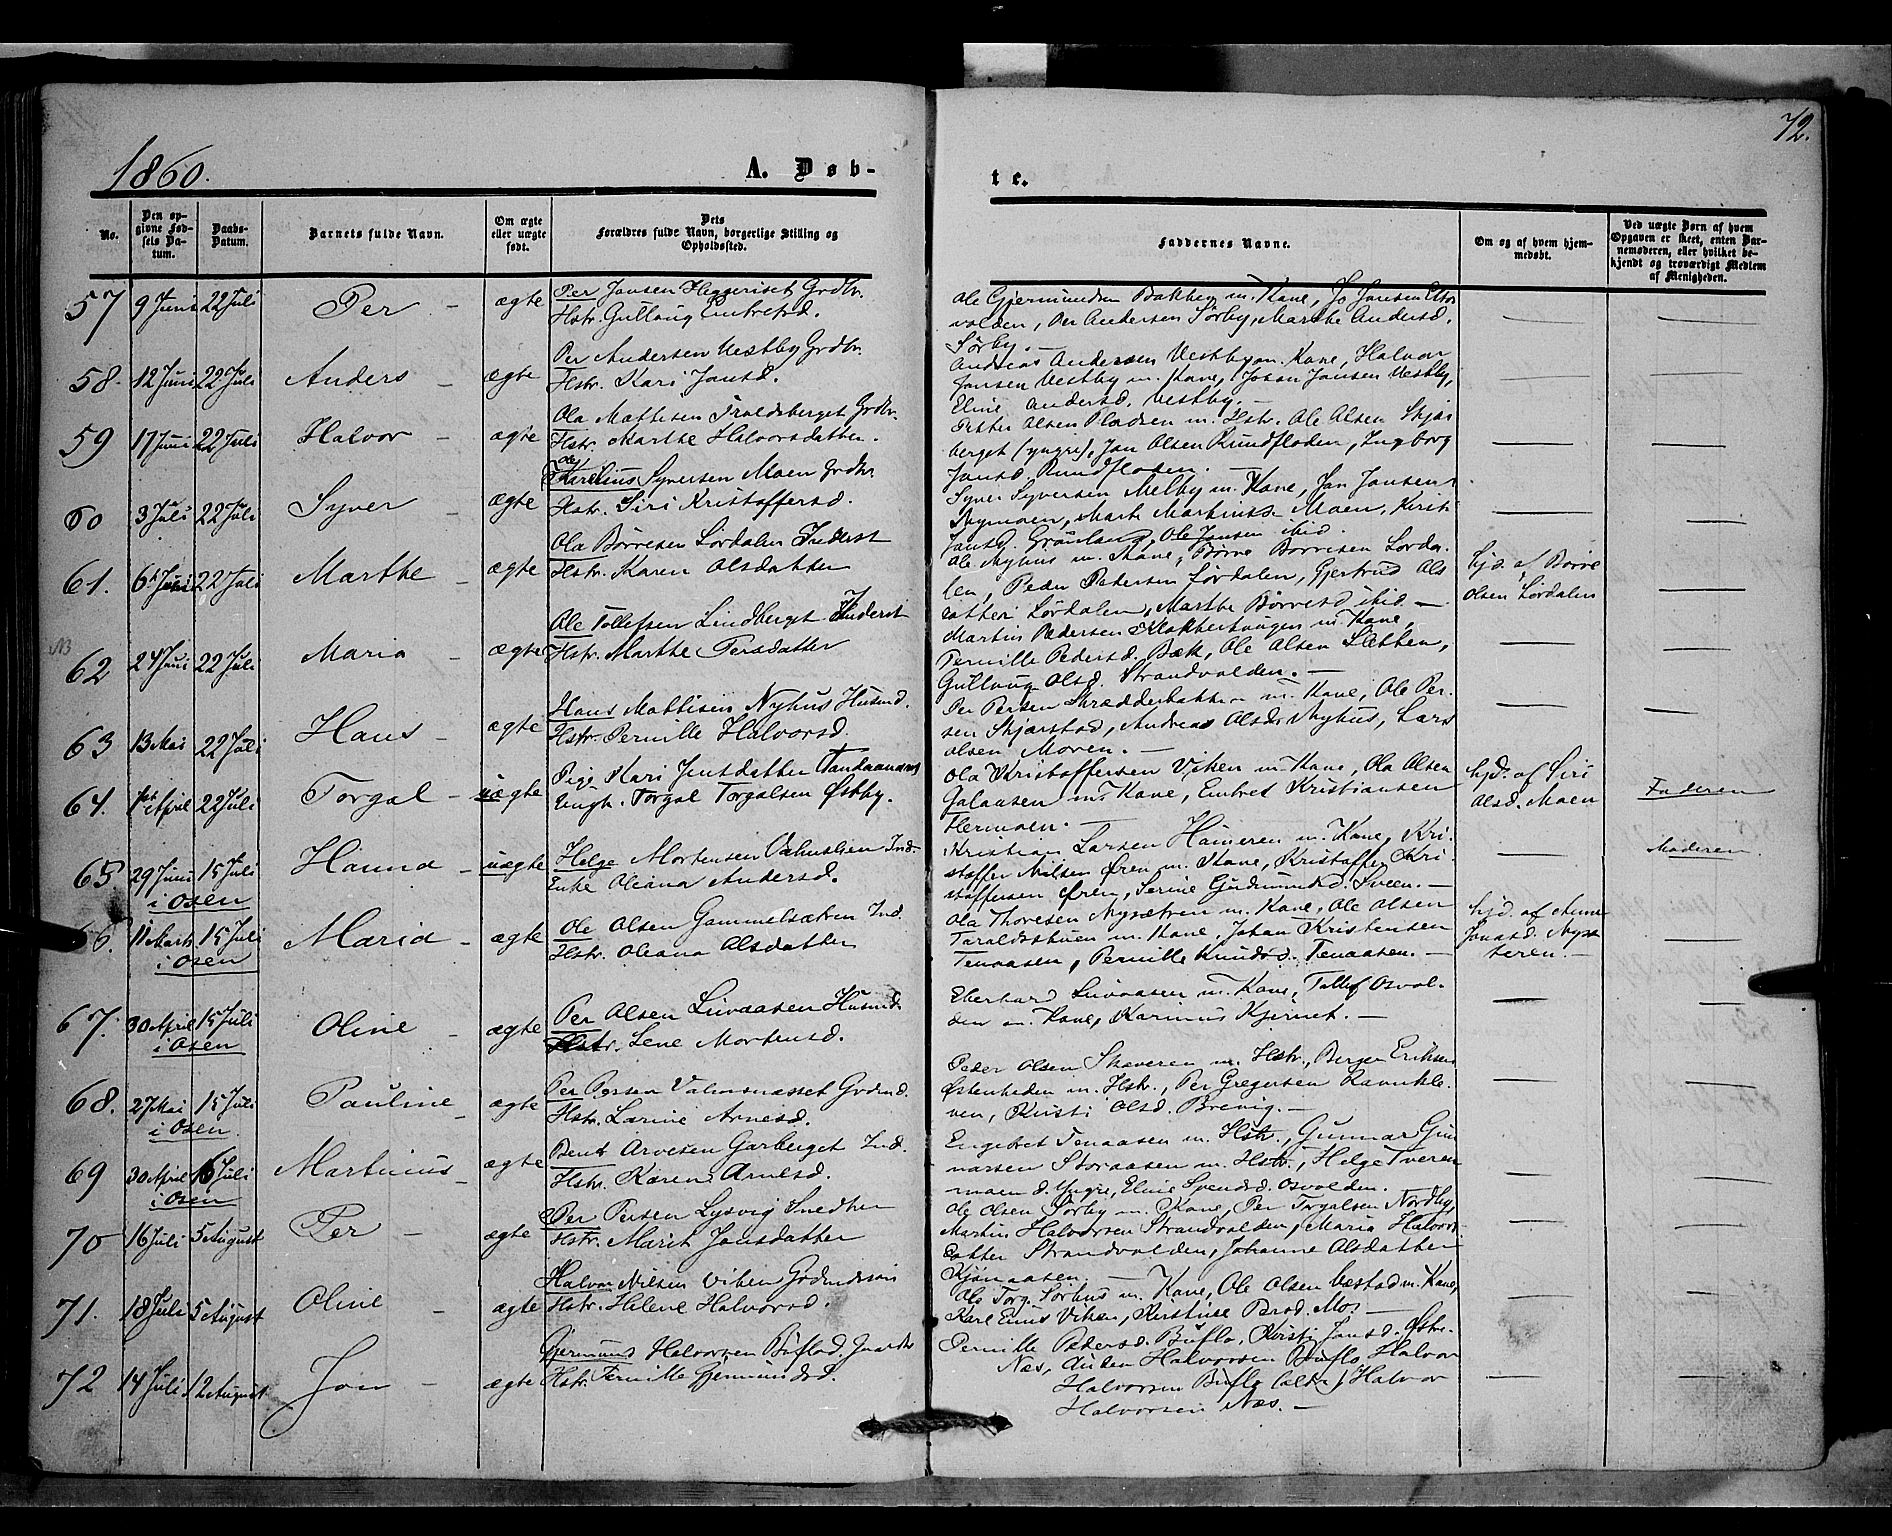 1860.
A. Døb-
te.
72.
No.
Den op-
givne Fød-
sels Da-
tum.
Daabs-
Datum.
Barnets fulde Navn.
Om ægte
eller uægte
født.
Dets
Forældres fulde Navn, borgerlige Stilling og
Opholdssted.
Faddernes Navne.
Om og af hvem hjem-
medøbt.
Ved uægte Børn af hvem
Opgaven er skeet, enten Bar-
nemoderen, eller hvilket be-
kjendt og troværdigt Medlem
af Menigheden.
57 9 Juni 22 Juli Per - ægte
Per Jonsen Heggeriset Grdbr.
Hstr. Gullaug Embretsd.
Ole Gjermundsen Bakby m. Kone, Jo Jonsen
volden, Per Andersen Sørby, Marthe Andersd.
Sørby. -
58. 12 Juni 22 Juli Anders - ægte
Per Andersen Vestby Grdbr.
Hstr. Kari Jonsd.
Andreas Andersen Vestby m. Kone, Halvor
Jonsen Vestby m. Kone, Johan Jonsen Vestby,
Eline Andersd. Vestby. -
59 17 Juni 22 Juli Halvor - ægte
Ola Mattisen Graldsberget Grdbr.
Hstr. Marthe Halvorsdatter.
Petter Olsen Pladsen m. Hstr. Ole Olsen Skjæs
berget (yngre), Jon Olsen Rundfloden, Ingborg
Jonsd Rundfloden. -
60 3 Juli 22 Juli Syver - ægte
Karelius Syversen Moen Grdbr
Hstr. Siri Kristoffersd.
Syver Syversen Melby m. Kone, Jon Jonsen
Nymoen, Marte Martinusd. Moen, Kirsti
Jonsd. Grønland, Ole Jonsen ibid.
61. 6 Juni 22 Juli Marthe - ægte
Ola Børresen Lørdalen Inderst
Hstr. Karen Olsdatter
Ole Nyhus m. Kone, Børre Børresen Lørda-
len, Peder Pedersen Lørdalen, Gjertrud Ols
datter Lørdalen, Marthe Børresd ibid. -
hjd. af Børre
Olsen Lørdalen
NB
62 24 Juni 22 Juli Maria - ægte
Ole Tollefsen Lindberget Inderst
Hstr. Marthe Persdatter
Martin Pedersen Klokkerhaugen m. Kone,
Pernille Pedersd. Bæk, Ole Olsen Sletten,
Gullaug Olsd. Strandvolden. -
63 13 Mai 22 Juli Hans - ægte
Hans Mattisen Nyhus Husmd.
Hstr. Pernille Halvorsd.
Per Persen Skrædderbakken m. Kone, Ole Per-
sen Skjærstad, Andreas Olsen Nyhus, Lars
Olsen Moren. -
64. 1st April 22 Juli Torgal - uægte
Pige Kari Jensdatter Tandaanæs
Ungk. Torgal Torgalsen Østby.
Ola Kristoffersen Viken m. Kone, Ola Olsen
Galaasen m. Kone, Embret Kristiansen
Hermoen. -
hjd. af Siri
Olsd. Moen
Faderen
65 29 Juni 15 Juli Hanna - uægte
i Osen
Helge Mortensen Valmslien Ind.
Enke Oleana Andersd.
Kristian Larsen Hameren m. Kone, Kri-
stoffer Nilsen Øren m. Kone, Kristoffer Kri-
stoffersen Øren, Serine Gudmundsd. Sveen. -
Moderen
66. 11 Marts 15 Juli Maria - ægte
i Osen
Ole Olsen Gammelsætren Ind.
Hstr. Oleana Olsdatter
Ola Thoresen Nysætren m. Kone, Ole Olsen
Taraldsstuen m. Kone, Johan Kristensen
Tenaasen, Pernille Knudsd. Tenaasen. -
hjd. af Anne
Jonasd. Nysæ-
teren. -
67. 30 April 15 Juli Oline - ægte
i Osen
Per Olsen Livaasen Husmd
Hstr. Lene Mortensd.
Eberhard Livaasen m. Kone, Tollef Osvol-
den m. Kone, Karinus Kjernet. -
68. 27 Mai 15 Juli Pauline - ægte
i Osen
Per Persen Valmsnæsset Grdmd.
Hstr. Larine Arnesd.
Peder Olsen Skaveren m. Hstr., Berger Eriksen
Østenheden m. Hstr., Per Gregersen Ravnkle-
ven, Kirsti Olsd. Brevig. -
69 30 April 16 Juli Martinius - ægte
i Osen
Bent Arvesen Garberget Ind.
Hstr. Karen Arnesd.
Engebret Tenaasen m. Hstr., Gunnar Gun
narsen Storaasen m. Hstr., Helge Tveren
moen d. Yngre, Eline Svendsd. Osvolden.
70 16 Juli 5 August Per - ægte
Per Persen Lysvig Snedker
Hstr. Marit Jonsdatter
Ole Olsen Sørby m. Kone, Per Torgalsen Nordby,
Martin Halvorsen Strandvolden, Maria Halvors
datter Strandvolden, Johanne Olsdatter
Kjønaasen. -
71. 18 Juli 5 August Oline - ægte
Halvor Nilsen Viken Grdmdssøn
Hstr. Helene Halvorsd.
Ole Torg. Sørhus m. Kone, Ole Olsen Bæstad m. Kone,
Karl Viken, Kirstine Persd. Mos -
72 14 Juli 12 August Jon - ægte
Gjermund Halvorsen Buflod
Hstr. Pernille Gjermundsd.
Pernille Pedersd. Buflo, Kirsti Jonsd. Østre-
Næs, Halvorsen Buflo, Halvor
Halvorsen Buflo (ældre) Halvor
Halvorsen Næs. -